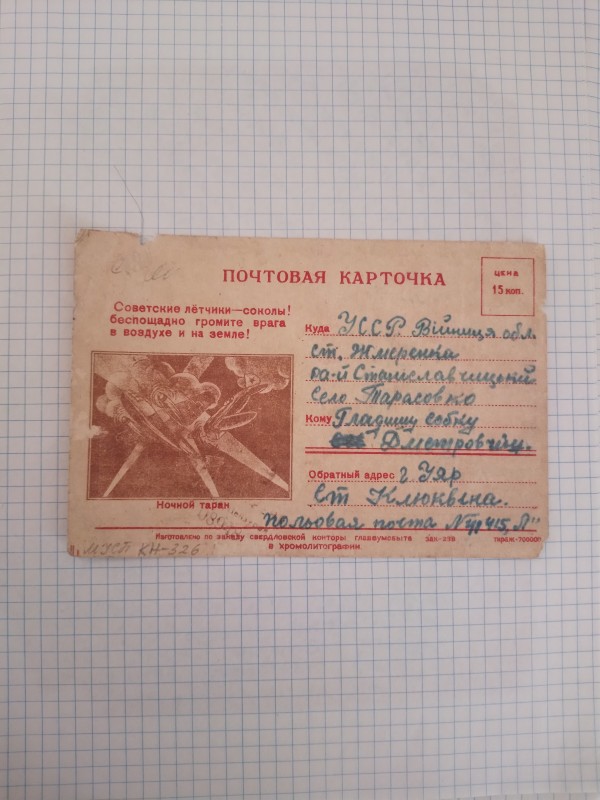 ПОЧТОВАЯ КАРТОЧКА
ЦЕНА
15 коп.
Советские лётчики—соколы!
беспощадно громите врага
в воздухе и на земле!
Куда УССР. Війниця обл.
ст. Жмеренка
ра-й Станіславчицкий
Село Тарасовко
Кому Гладишу
Дметровичу.
Обратный адрес г Уяр
Ст Клюквена.
польовая почта
Ночной таран
Изготовлено по заказу свердловской конторы главкумсбыта
в хромолитографии
МУСП КН-326